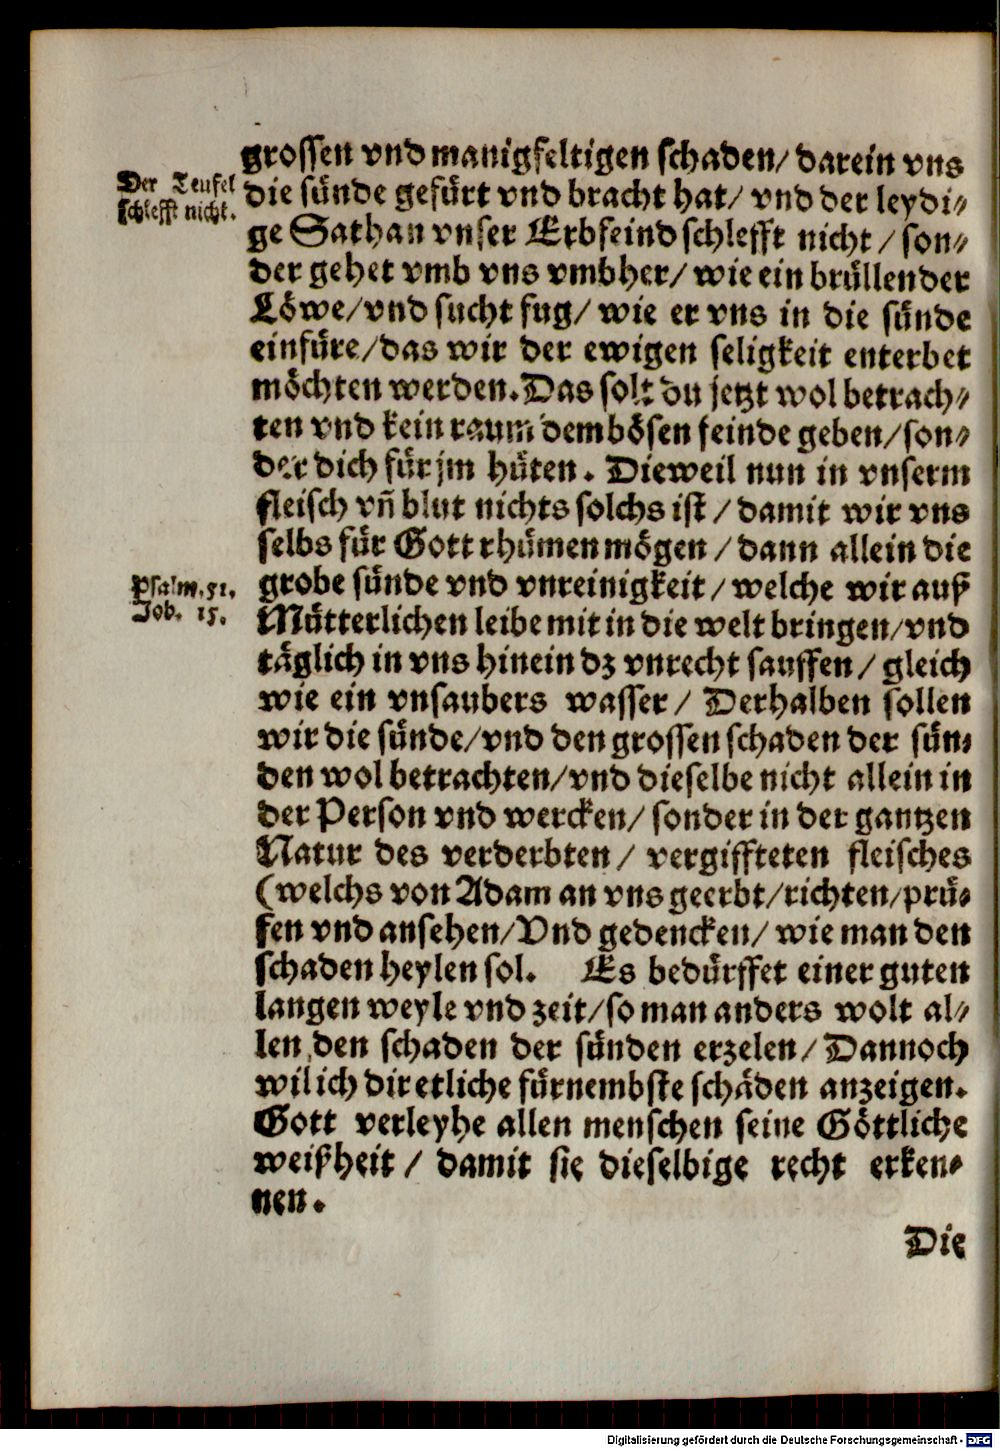 grossen vnd manigfeltigen schaden/ darein vns
Der Teufel
schlefft nicht.
die sünde gefürt vnd bracht hat/ vnd der leydi⸗
ge Sathan vnser Erbfeind schlefft nicht / son⸗
der gehet vmb vns vmbher/ wie ein brüllender
Löwe/ vnd sucht fug/ wie er vns in die sünde
einfüre/ das wir der ewigen seligkeit enterbet
möchten werden. Das solt du jetzt wol betrach⸗
ten vnd kein raum dem bösen feinde geben/ son⸗
der dich für jm hüten. Dieweil nun in vnserm
fleisch vñ blut nichts solchs ist / damit wir vns
selbs für Gott rhümen mögen / dann allein die
Psalm. 51.
Job. 15.
grobe sünde vnd vnreinigkeit / welche wir auß
Mütterlichen leibe mit in die welt bringen/ vnd
täglich in vns hinein dz vnrecht sauffen / gleich
wie ein vnsaubers wasser / Derhalben sollen
wir die sünde/ vnd den grossen schaden der sün⸗
den wol betrachten/ vnd dieselbe nicht allein in
der Person vnd wercken/ sonder in der gantzen
Natur des verderbten / vergiffteten fleisches
(welchs von Adam an vns geerbt/ richten/ prü⸗
fen vnd ansehen/ Vnd gedencken/ wie man den
schaden heylen sol. Es bedürffet einer guten
langen weyle vnd zeit/ so man anders wolt al⸗
len den schaden der sünden erzelen/ Dannoch
wil ich dir etliche fürnembste schäden anzeigen.
Gott verleyhe allen menschen seine Göttliche
weißheit / damit sie dieselbige recht erken⸗
nen.
Die
Digitalisierung gefördert durch die Deutsche Forschungsgemeinschaft - DFG